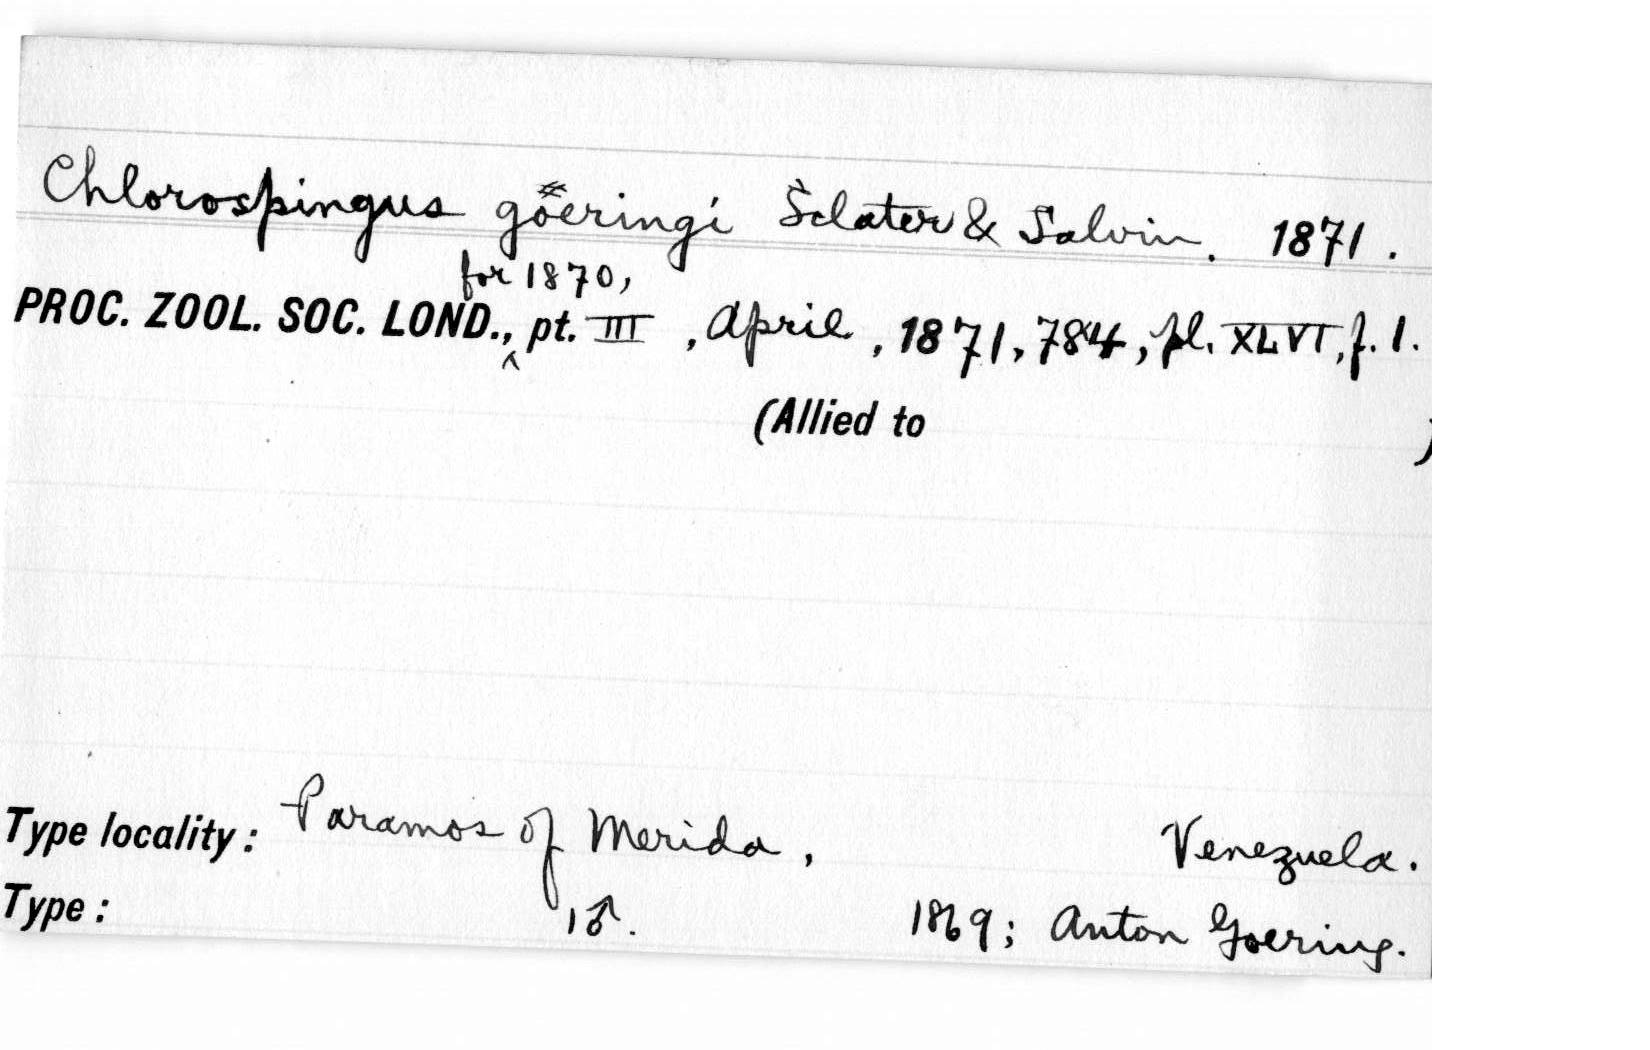 Chlorospingus göeringi Sclater & Salvin. 1871.
for 1870,
PROC. ZOOL. SOC. LOND., ^ pt. III, April, 1871, 784, pl. XLVI, f. 1.
(Allied to )
Type locality: Paramos of Merida, Venezuela.
Type: 1♂. 1869; Anton Goering.